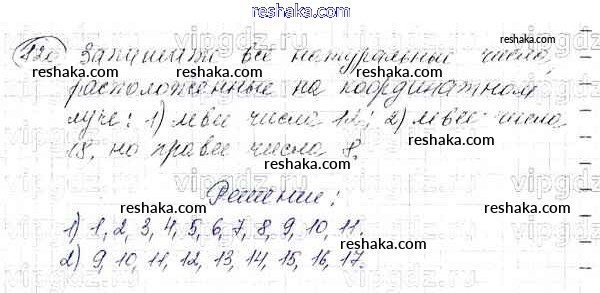 reshaka.com
120 Запишите все натуральные числа,
расположенные на координатном
луче: 1) левее числа 12; 2) левее числа
18, но правее числа 8.
Решение:
1) 1, 2, 3, 4, 5, 6, 7, 8, 9, 10, 11.
2) 9, 10, 11, 12, 13, 14, 15, 16, 17.
reshaka.com